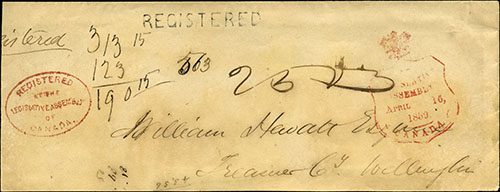 REGISTERED
istered
313 15
123
190 15
563
REGISTERED
AT THE
LEGISLATIVE ASSEMBLY
OF
CANADA.
SSEMBLY
April 16,
1860
ANADA
William Hewatt Esq
Treasurer Co. Wellington